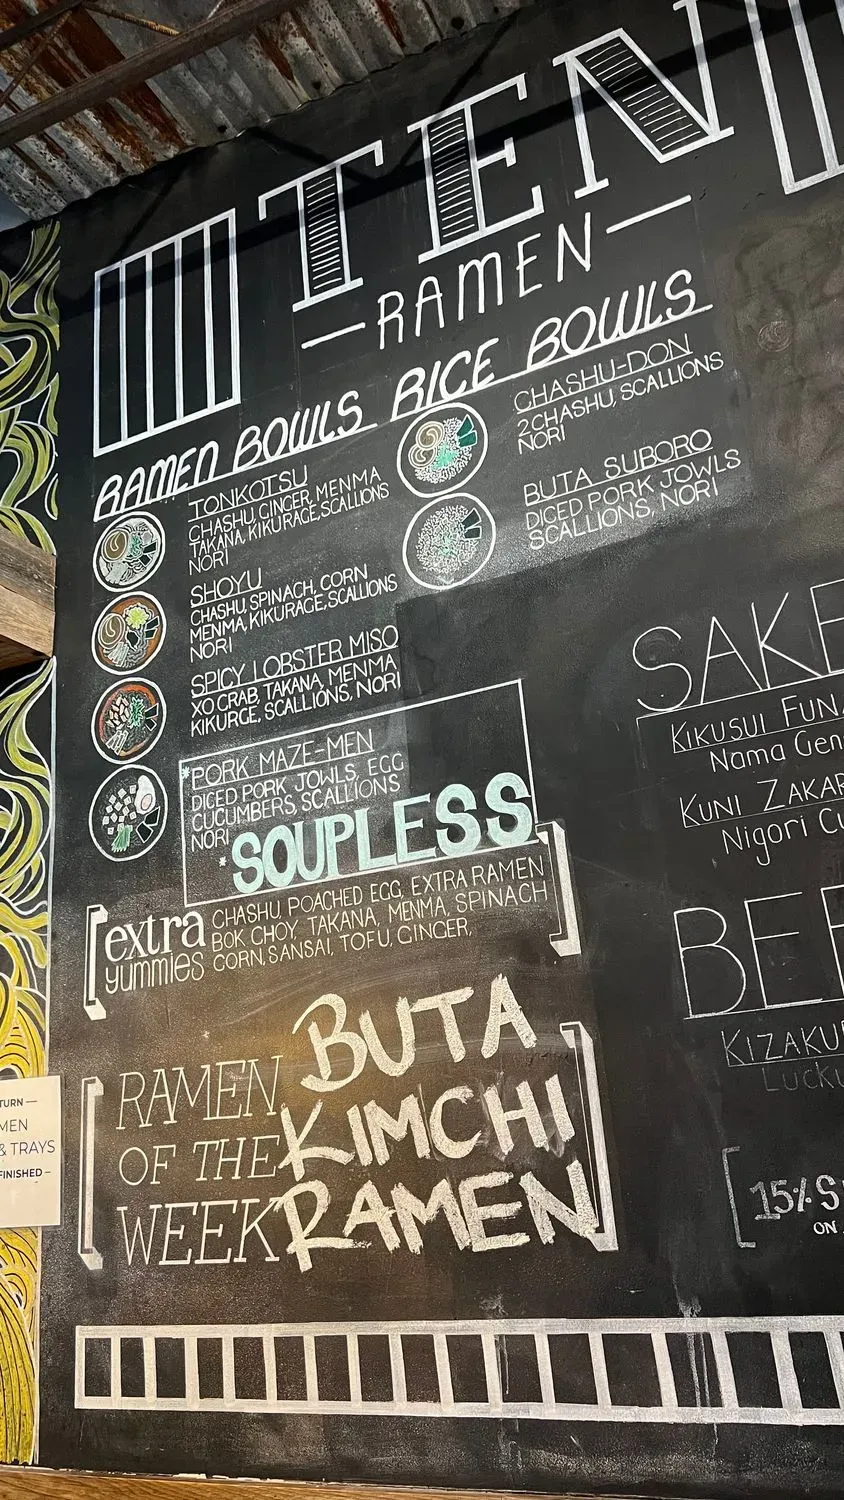 TEN
RAMEN
RAMEN BOWLS
TONKOTSU
CHASHU, GINGER, MENMA
TAKANA, KIKURAGE, SCALLIONS
NORI
SHOYU
CHASHU, SPINACH, CORN
MENMA, KIKURAGE, SCALLIONS
NORI
SPICY LOBSTER MISO
XO CRAB, TAKANA, MENMA
KIKURGE, SCALLIONS, NORI
*PORK MAZE-MEN
DICED PORK JOWLS, EGG
CUCUMBERS, SCALLIONS
NORI
*SOUPLESS
RICE BOWLS
CHASHU-DON
2 CHASHU, SCALLIONS
NORI
BUTA SUBORO
DICED PORK JOWLS
SCALLIONS, NORI
extra
yummies
CHASHU, POACHED EGG, EXTRA RAMEN
BOK CHOY, TAKANA, MENMA, SPINACH
CORN, SANSAI, TOFU, GINGER,
RAMEN
OF THE
WEEK
BUTA
KIMCHI
RAMEN
SAKE
KIKUSUI FUNA
Nama Gen
KUNI ZAKAR
Nigori Cu
BEE
KIZAKU
LUCKY
15% S
ON
TURN —
MEN
& TRAYS
FINISHED –